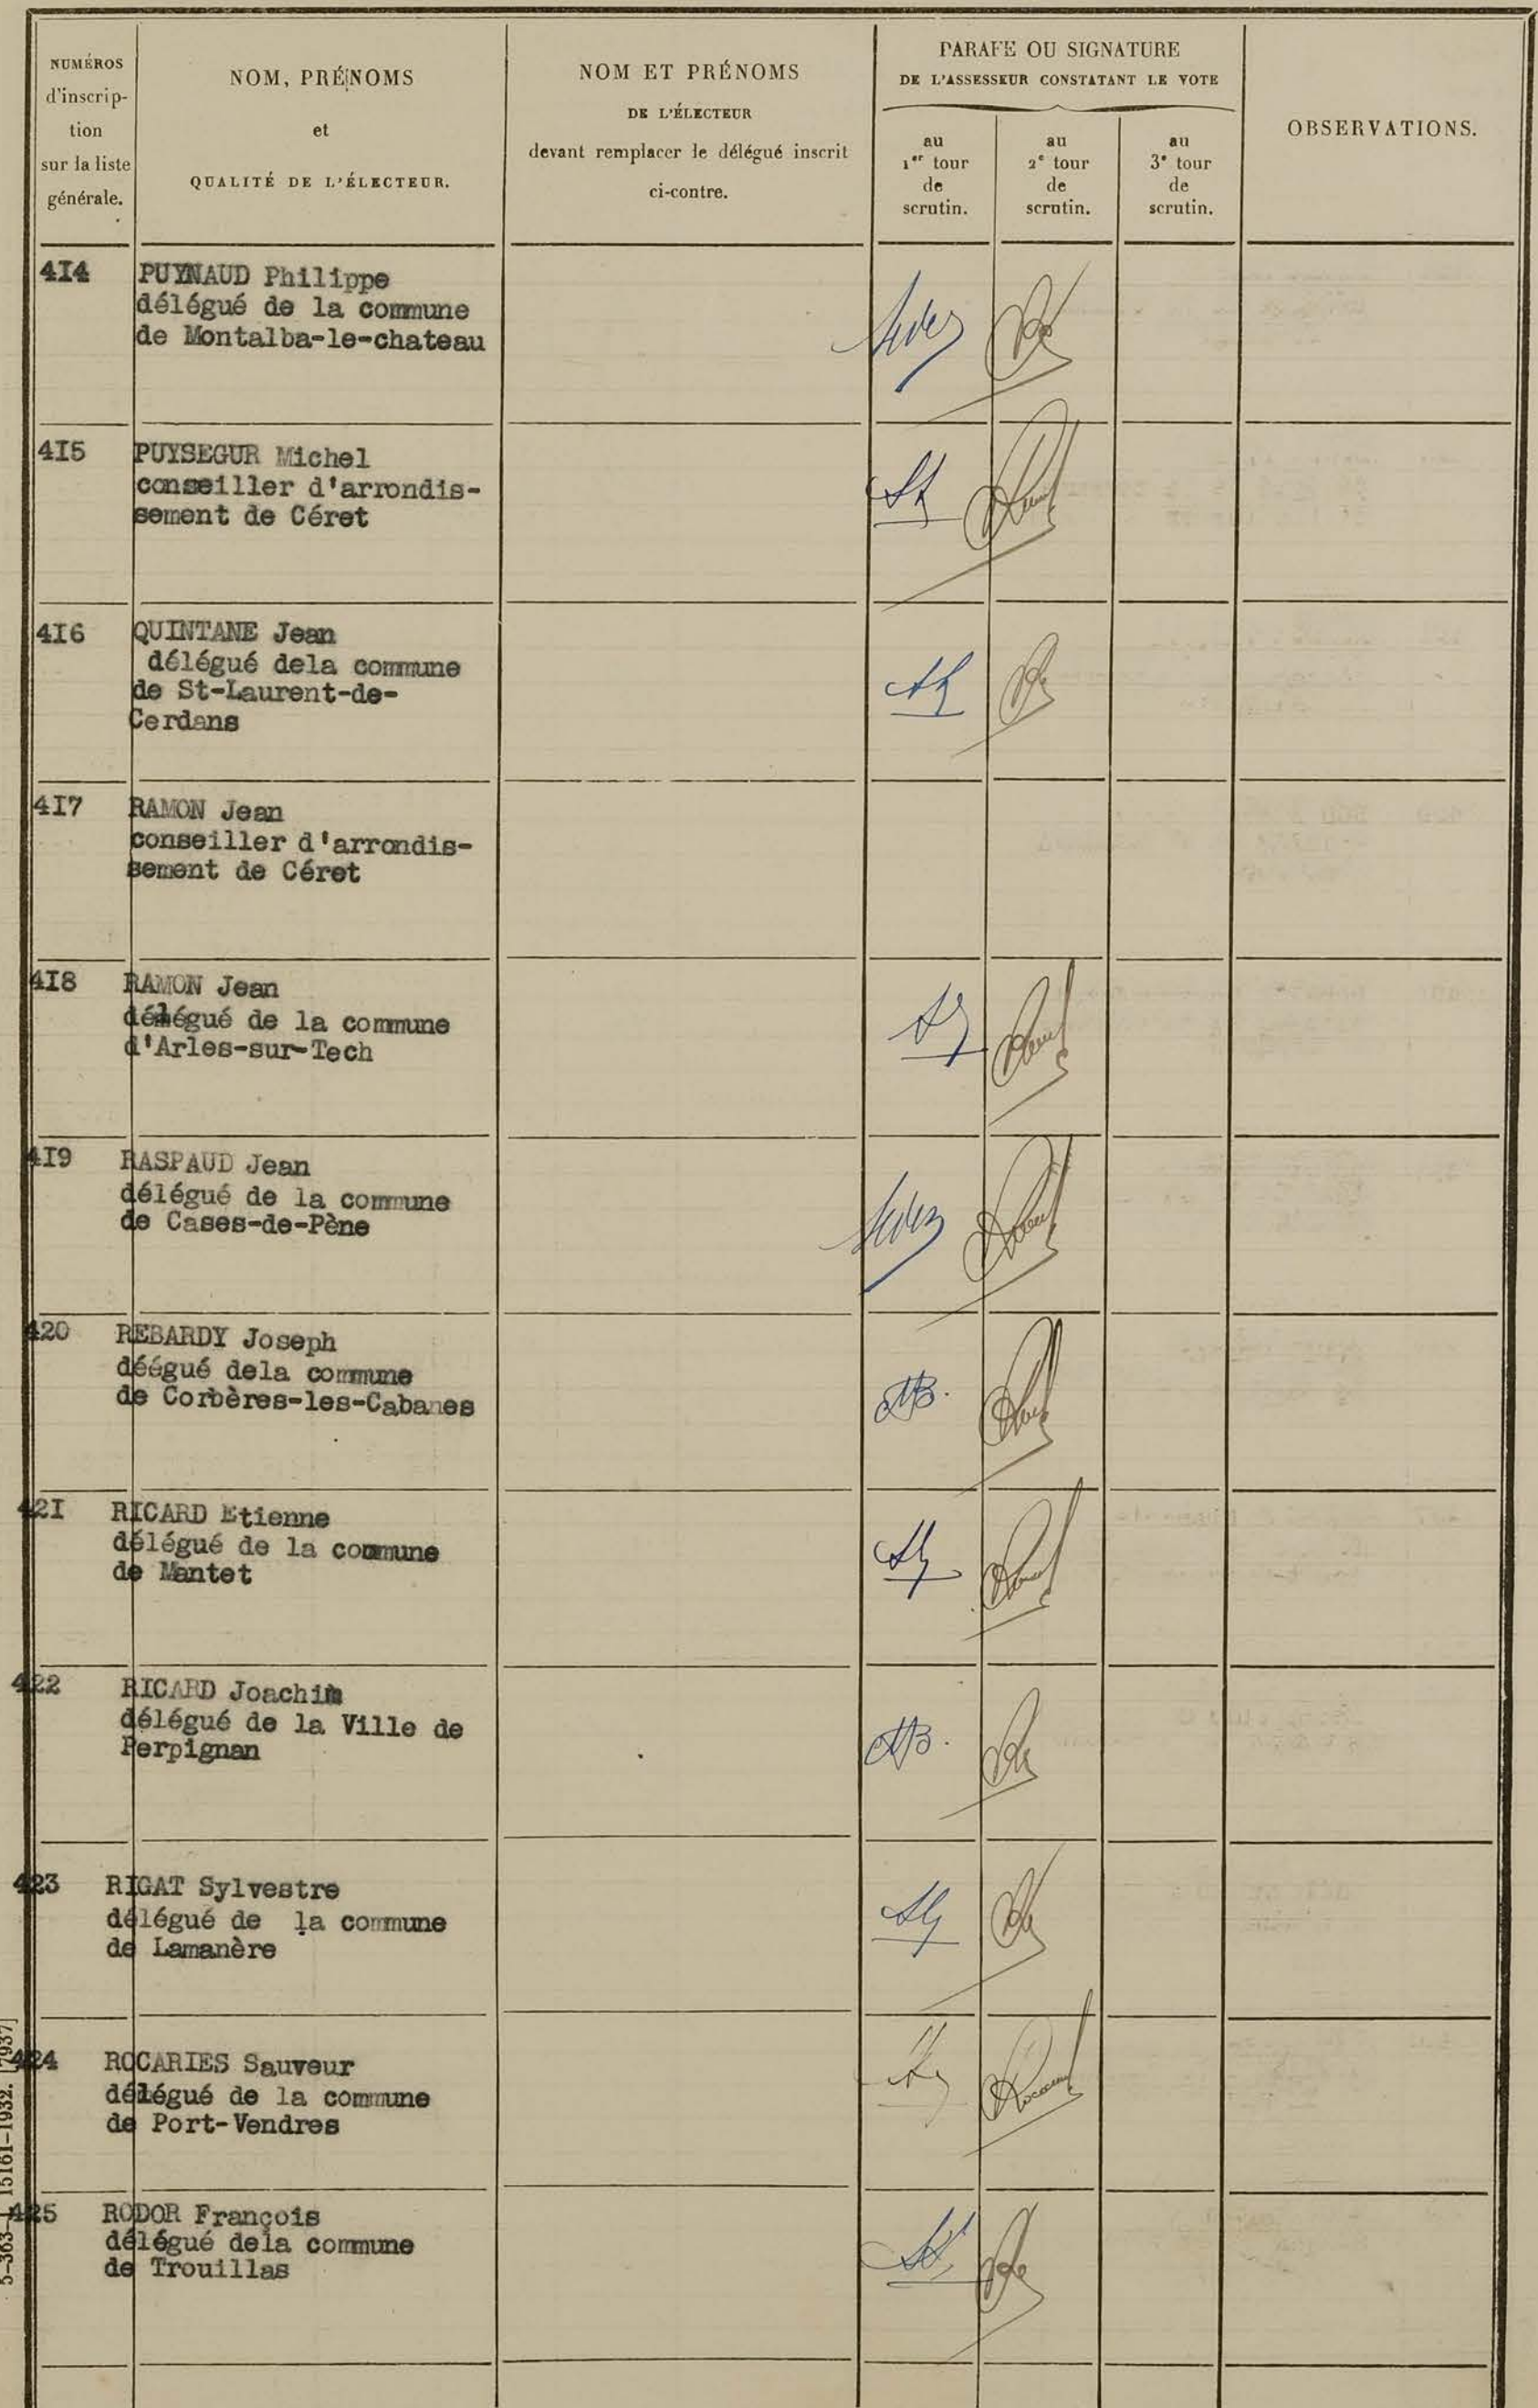 NUMÉROS
d'inscrip-
tion
sur la liste
générale.
NOM, PRÉNOMS
et
QUALITÉ DE L'ÉLECTEUR.
NOM ET PRÉNOMS
DE L'ÉLECTEUR
devant remplacer le délégué inscrit
ci-contre.
PARAFE OU SIGNATURE
DE L'ASSESSEUR CONSTATANT LE VOTE
au
1er tour
de
scrutin.
au
2e tour
de
scrutin.
au
3e tour
de
scrutin.
OBSERVATIONS.
4I4 PUYNAUD Philippe
délégué de la commune
de Montalba-le-chateau
4I5 PUYSEGUR Michel
conseiller d'arrondis-
sement de Céret
4I6 QUINTANE Jean
délégué dela commune
de St-Laurent-de-
Cerdans
4I7 RAMON Jean
conseiller d'arrondis-
sement de Céret
4I8 RAMON Jean
délégué de la commune
d'Arles-sur-Tech
4I9 RASPAUD Jean
délégué de la commune
de Cases-de-Pène
420 REBARDY Joseph
déégué dela commune
de Corbères-les-Cabanes
MB.
42I RICARD Etienne
délégué de la commune
de Mantet
422 RICARD Joachim
délégué de la Ville de
Perpignan
MB.
423 RIGAT Sylvestre
délégué de la commune
de Lamanère
424 ROCARIES Sauveur
délégué de la commune
de Port-Vendres
425 RODOR François
délégué dela commune
de Trouillas
15161-1932. [7937]